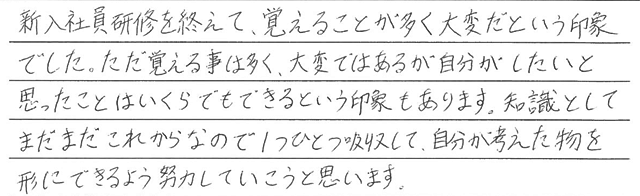 新入社員研修を終えて、覚えることが多く大変だという印象
でした。ただ覚える事は多く、大変ではあるが自分がしたいと
思ったことはいくらでもできるという印象もあります。知識として
まだまだこれからなので1つひとつ吸収して、自分が考えた物を
形にできるよう努力していこうと思います。